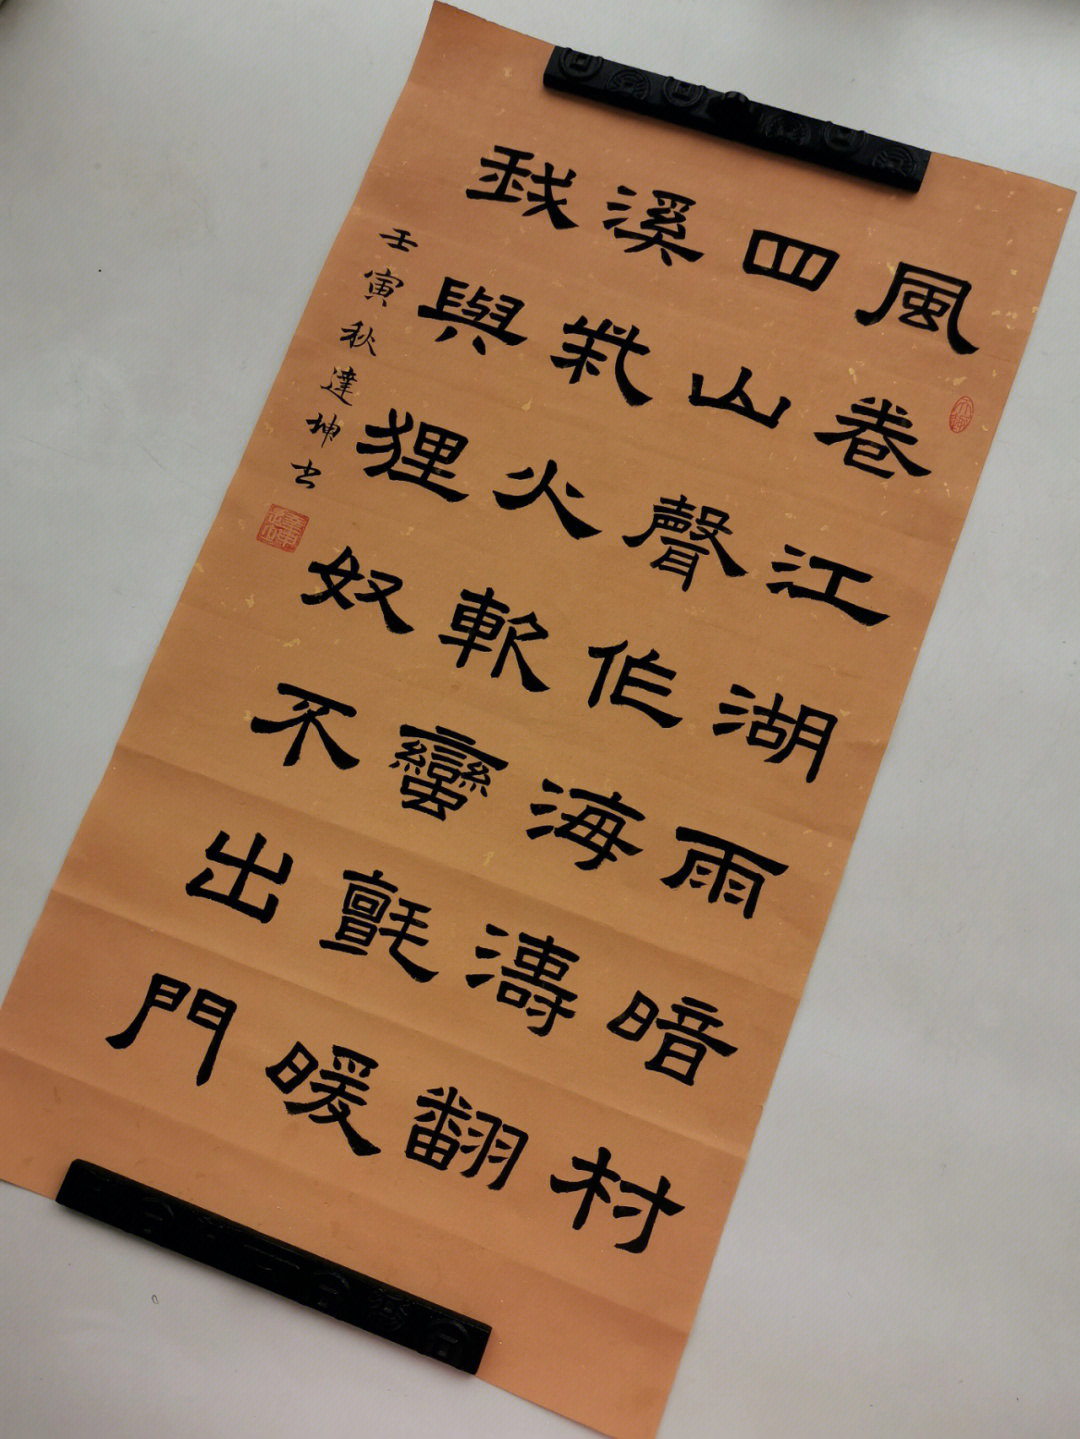 風卷江湖雨暗村
四山聲作海濤翻
溪柴火軟蠻氈暖
我與狸奴不出門
壬寅秋達坤书